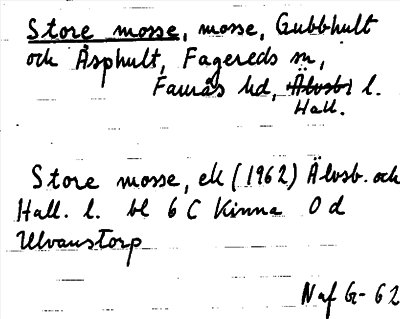 Store mosse, mosse, Gubbhult
och Äsphult, Fagereds sn,
Faurås hd, Älvsb l.
Hall.
Store mosse, ek (1962) Älvsb. och
Hall. l. bl 6 C Kinna 0 d
Ulvanstorp
Naf G-62